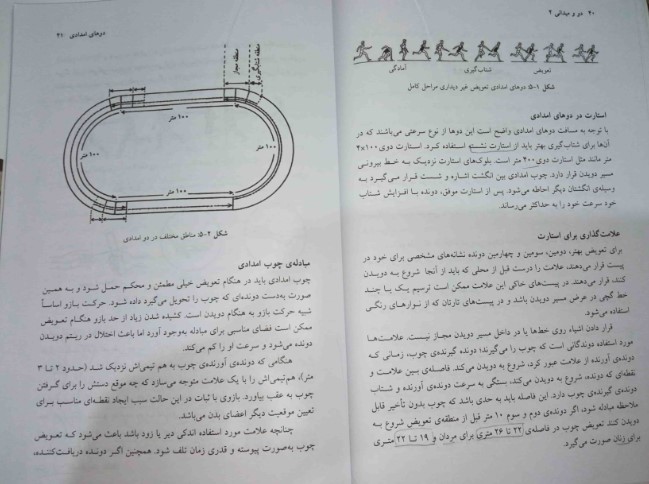 ۴۰ دو و میدانی ۲
آمادگی شتاب‌گیری تعویض
شکل ۱-۵: دوهای امدادی تعویض غیر دیداری مراحل کامل
استارت در دوهای امدادی
با توجه به مسافت دوهای امدادی واضح است این دوها از نوع سرعتی می‌باشند که در
آن‌ها برای شتاب‌گیری بهتر باید از استارت نشسته استفاده کرد. استارت دوی ۱۰۰×۴
متر مانند مثل استارت دوی ۲۰۰ متر است. بلوک‌های استارت نزدیک به خط بیرونی
مسیر دویدن قرار دارد. چوب امدادی بین انگشت اشاره و شست قرار می‌گیرد به
وسیله‌ی انگشتان دیگر احاطه می‌شود. پس از استارت موفق، دونده با افزایش شتاب
خود سرعت خود را به حداکثر می‌رساند.
علامت‌گذاری برای استارت
برای تعویض بهتر، دومین، سومین و چهارمین دونده نشانه‌های مشخصی برای خود در
پیست قرار می‌دهند، علامت را درست قبل از محلی که باید از آنجا شروع به دویدن
کنند، قرار می‌دهند. در پیست‌های خاکی این علامت ممکن است ترسیم یک یا چند
خط گچی در عرض مسیر دویدن باشد و در پیست‌های تارتان که از نوارهای رنگی
استفاده می‌شود.
قرار دادن اشیاء روی خط‌ها یا در داخل مسیر دویدن مجاز نیست. علامت‌ها
مورد استفاده دوندگانی است که چوب را می‌گیرند؛ دونده گیرنده‌ی چوب، زمانی که
دونده‌ی آورنده از علامت عبور کرد، شروع به دویدن می‌کند. فاصله‌ی بین علامت و
نقطه‌ای که دونده، شروع به دویدن می‌کند، بستگی به سرعت دونده‌ی آورنده و شتاب
دونده‌ی گیرنده‌ی چوب دارد. این فاصله باید به حدی باشد که چوب بدون تأخیر قابل
ملاحظه مبادله شود، اگر دونده‌ی دوم و سوم ۱۰ متر قبل از منطقه‌ی تعویض شروع به
دویدن کنند تعویض چوب در فاصله‌ی ۲۲ تا ۲۶ متری برای مردان و ۱۹ تا ۲۲ متری
برای زنان صورت می‌گیرد.
دوهای امدادی ۴۱
منطقه مجاز
منطقه شتابگیری
۱۰۰ متر
۱۰۰ متر
۱۰۰ متر
۱۰۰ متر
شکل ۲-۵: مناطق مختلف در دو امدادی
مبادله‌ی چوب امدادی
چوب امدادی باید در هنگام تعویض خیلی مطمئن و محکم حمل شود و به همین
صورت به‌دست دونده‌ای که چوب را تحویل می‌گیرد داده شود. حرکت بازو اساساً
شبیه حرکت بازو به هنگام دویدن است. کشیده شدن زیاد از حد بازو هنگام تعویض
ممکن است فضای مناسبی برای مبادله به‌وجود آورد اما باعث اختلال در ریتم دویدن
دونده می‌شود و سرعت او را کم می‌کند.
هنگامی که دونده‌ی آورنده‌ی چوب به هم تیمی‌اش نزدیک شد (حدود ۲ تا ۳
متر)، هم‌تیمی‌اش را با یک علامت متوجه می‌سازد که چه موقع دستش را برای گرفتن
چوب به عقب بیاورد. بازوی با ثبات در این حالت سبب ایجاد نقطه‌ای مناسب برای
تعیین موقعیت دیگر اعضای بدن می‌باشد.
چنانچه علامت مورد استفاده اندکی دیر یا زود باشد باعث می‌شود که تعویض
چوب به‌صورت پیوسته و قدری زمان تلف شود. همچنین اگر دونده دریافت‌کننده،